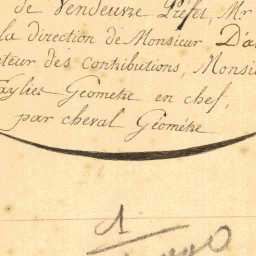 de Vendeuvre Préfet, Mr
la direction de Monsieur D'a
teur des contributions, Monsi
aylies Géometre en chef,
par cheval Géométre
A